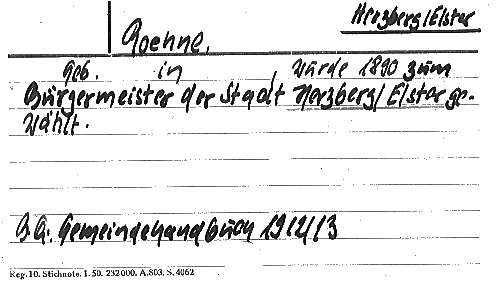 Herzberg/Elster
Goehne,
geb. in , wurde 1890 zum
Bürgermeister der Stadt Herzberg/Elster ge-
wählt.
BA: Gemeindehandbuch 1912/13
Reg. 10. Stichnote. 1. 50. 232000. A.803. S. 4062